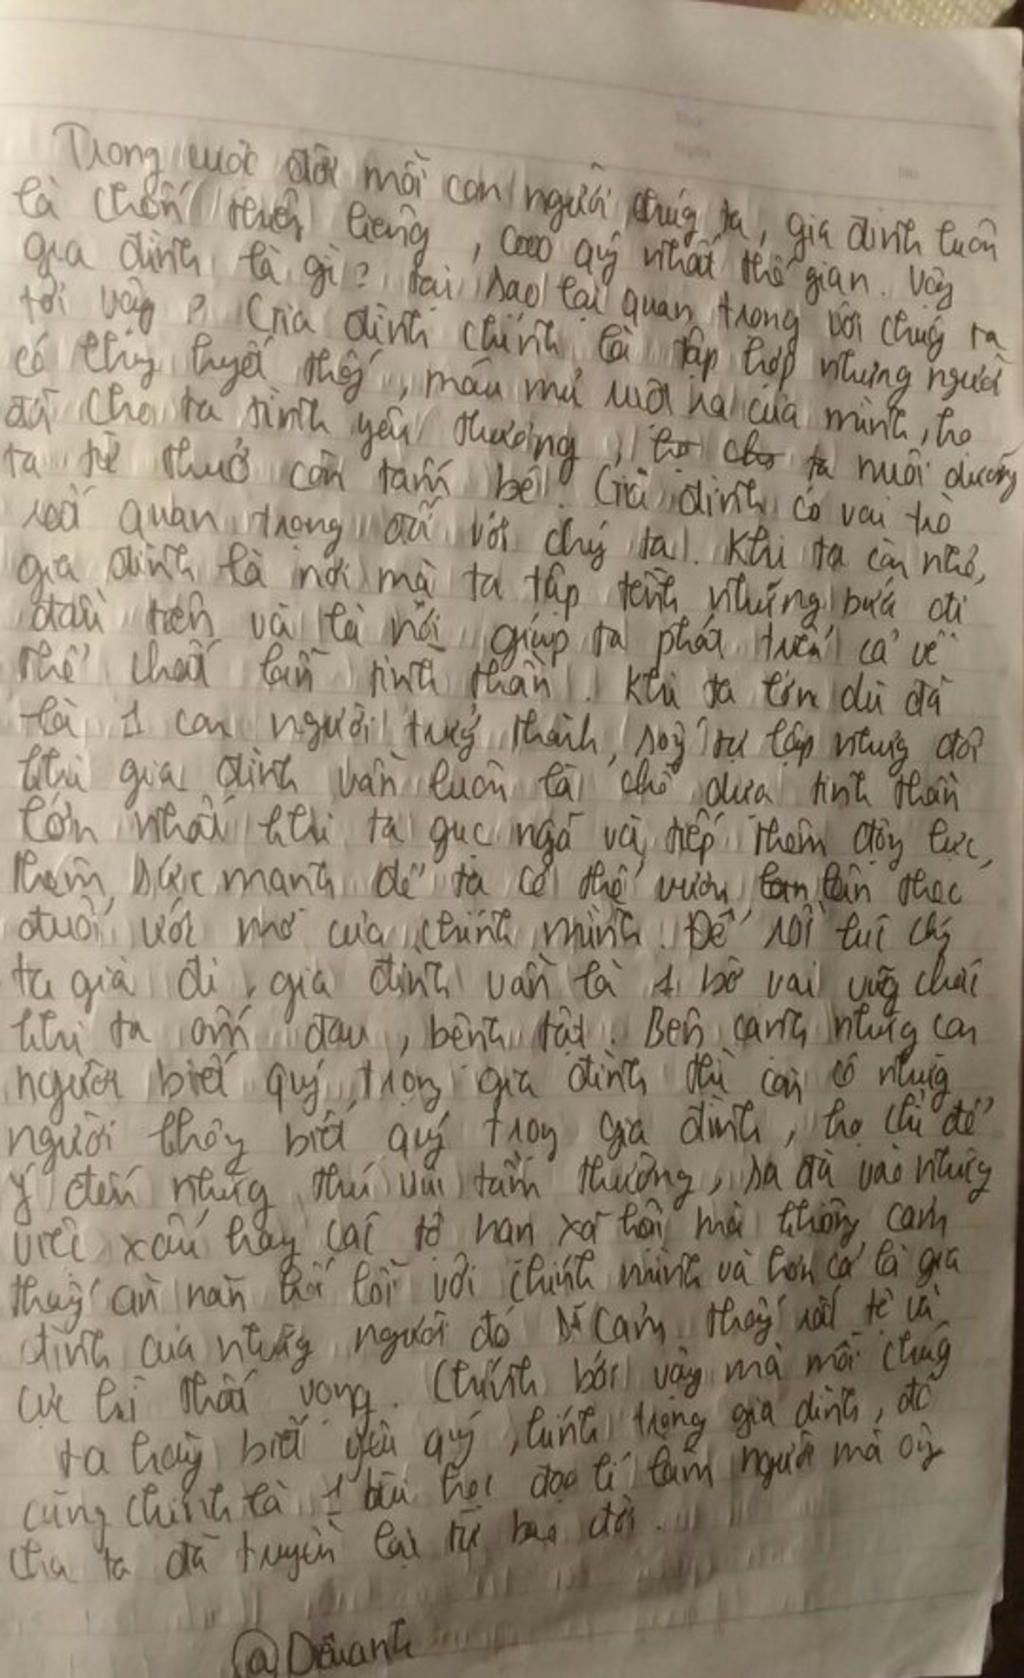 Trong cuộc đời mỗi con người chúng ta, gia đình luôn
là chốn thiên liêng, cao quý nhất thế gian. Vậy
gia đình là gì? Tại sao lại quan trọng với chúng ta
tới vậy? Gia đình chính là tập hợp những người
có chung huyết thống, máu mủ của mình, họ
đã cho ta tình yêu thương, nuôi dưỡng
ta từ thuở còn tấm bé. Gia đình có vai trò
rất quan trọng đối với chúng ta. Khi ta còn nhỏ,
gia đình là nơi mà ta tập tành những bước đi
đầu tiên và là nơi giúp ta phát triển cả về
thể chất lẫn tinh thần. Khi ta lớn dù đã
là 1 con người trưởng thành, sống tự lập nhưng đôi
khi gia đình vẫn luôn là chỗ dựa tinh thần
lớn nhất khi ta gục ngã và tiếp thêm động lực,
thêm sức mạnh để ta có thể vươn lên theo
đuổi ước mơ của chính mình. Để rồi lúc chúng
ta già đi, gia đình vẫn là 1 bờ vai vững chắc
khi ta ốm đau, bệnh tật. Bên cạnh những con
người biết quý trọng gia đình thì còn có những
người không biết quý trọng gia đình, họ chỉ để
ý đến những thú vui tầm thường, sa đà vào những
việc xấu hay các tệ nạn xã hội mà không cảm
thấy ăn năn hối lỗi với chính mình và hơn cả là gia
đình của những người đó sẽ cảm thấy rất tệ và
cực kì thất vọng. Chính bởi vậy mà mỗi chúng
ta hãy biết yêu quý, kính trọng gia đình, đó
cũng chính là 1 bài học đạo lí làm người mà ông
cha ta đã truyền lại từ bao đời.
@Dieuanh